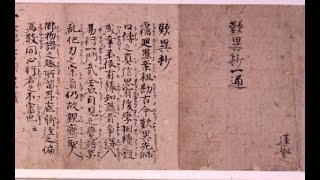 歎異抄一通
蓮如
歎異抄
竊廻愚案粗勘古今歎異先師
口傳之真信思有後學相續疑
惑幸不依有緣知識者爭得入
易行一門哉全以自見之覺語莫
亂他力之宗旨仍故親鸞聖人
御物語之趣所留耳底聊注之偏
為散同心行者之不審也云々